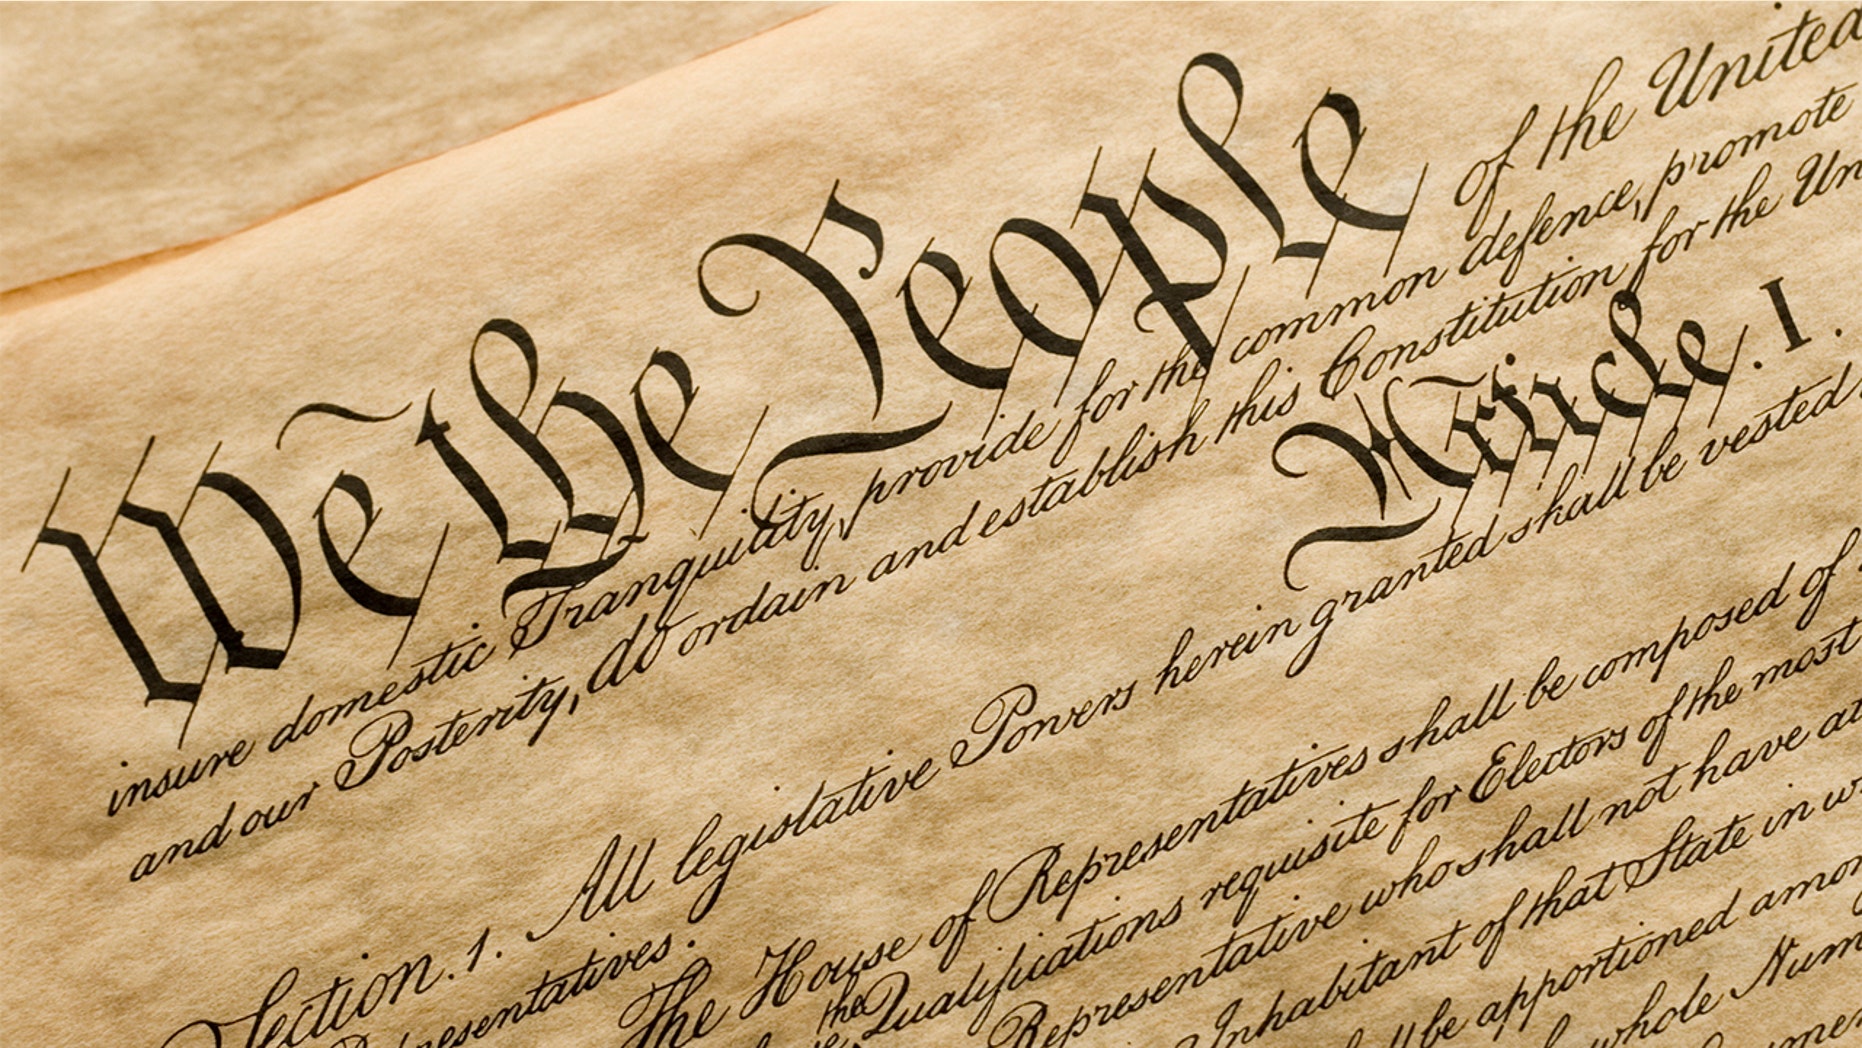 We the People of the United
insure domestic Tranquility, provide for the common defence, promote
and our Posterity, do ordain and establish this Constitution for the Un
Article. I.
Section. 1. All legislative Powers herein granted shall be vested
presentatives.
The House of Representatives shall be composed of
the Qualifications requisite for Electors of the most
Representative who shall not have at
Inhabitant of that State in w
ll be apportioned amon
whole Num